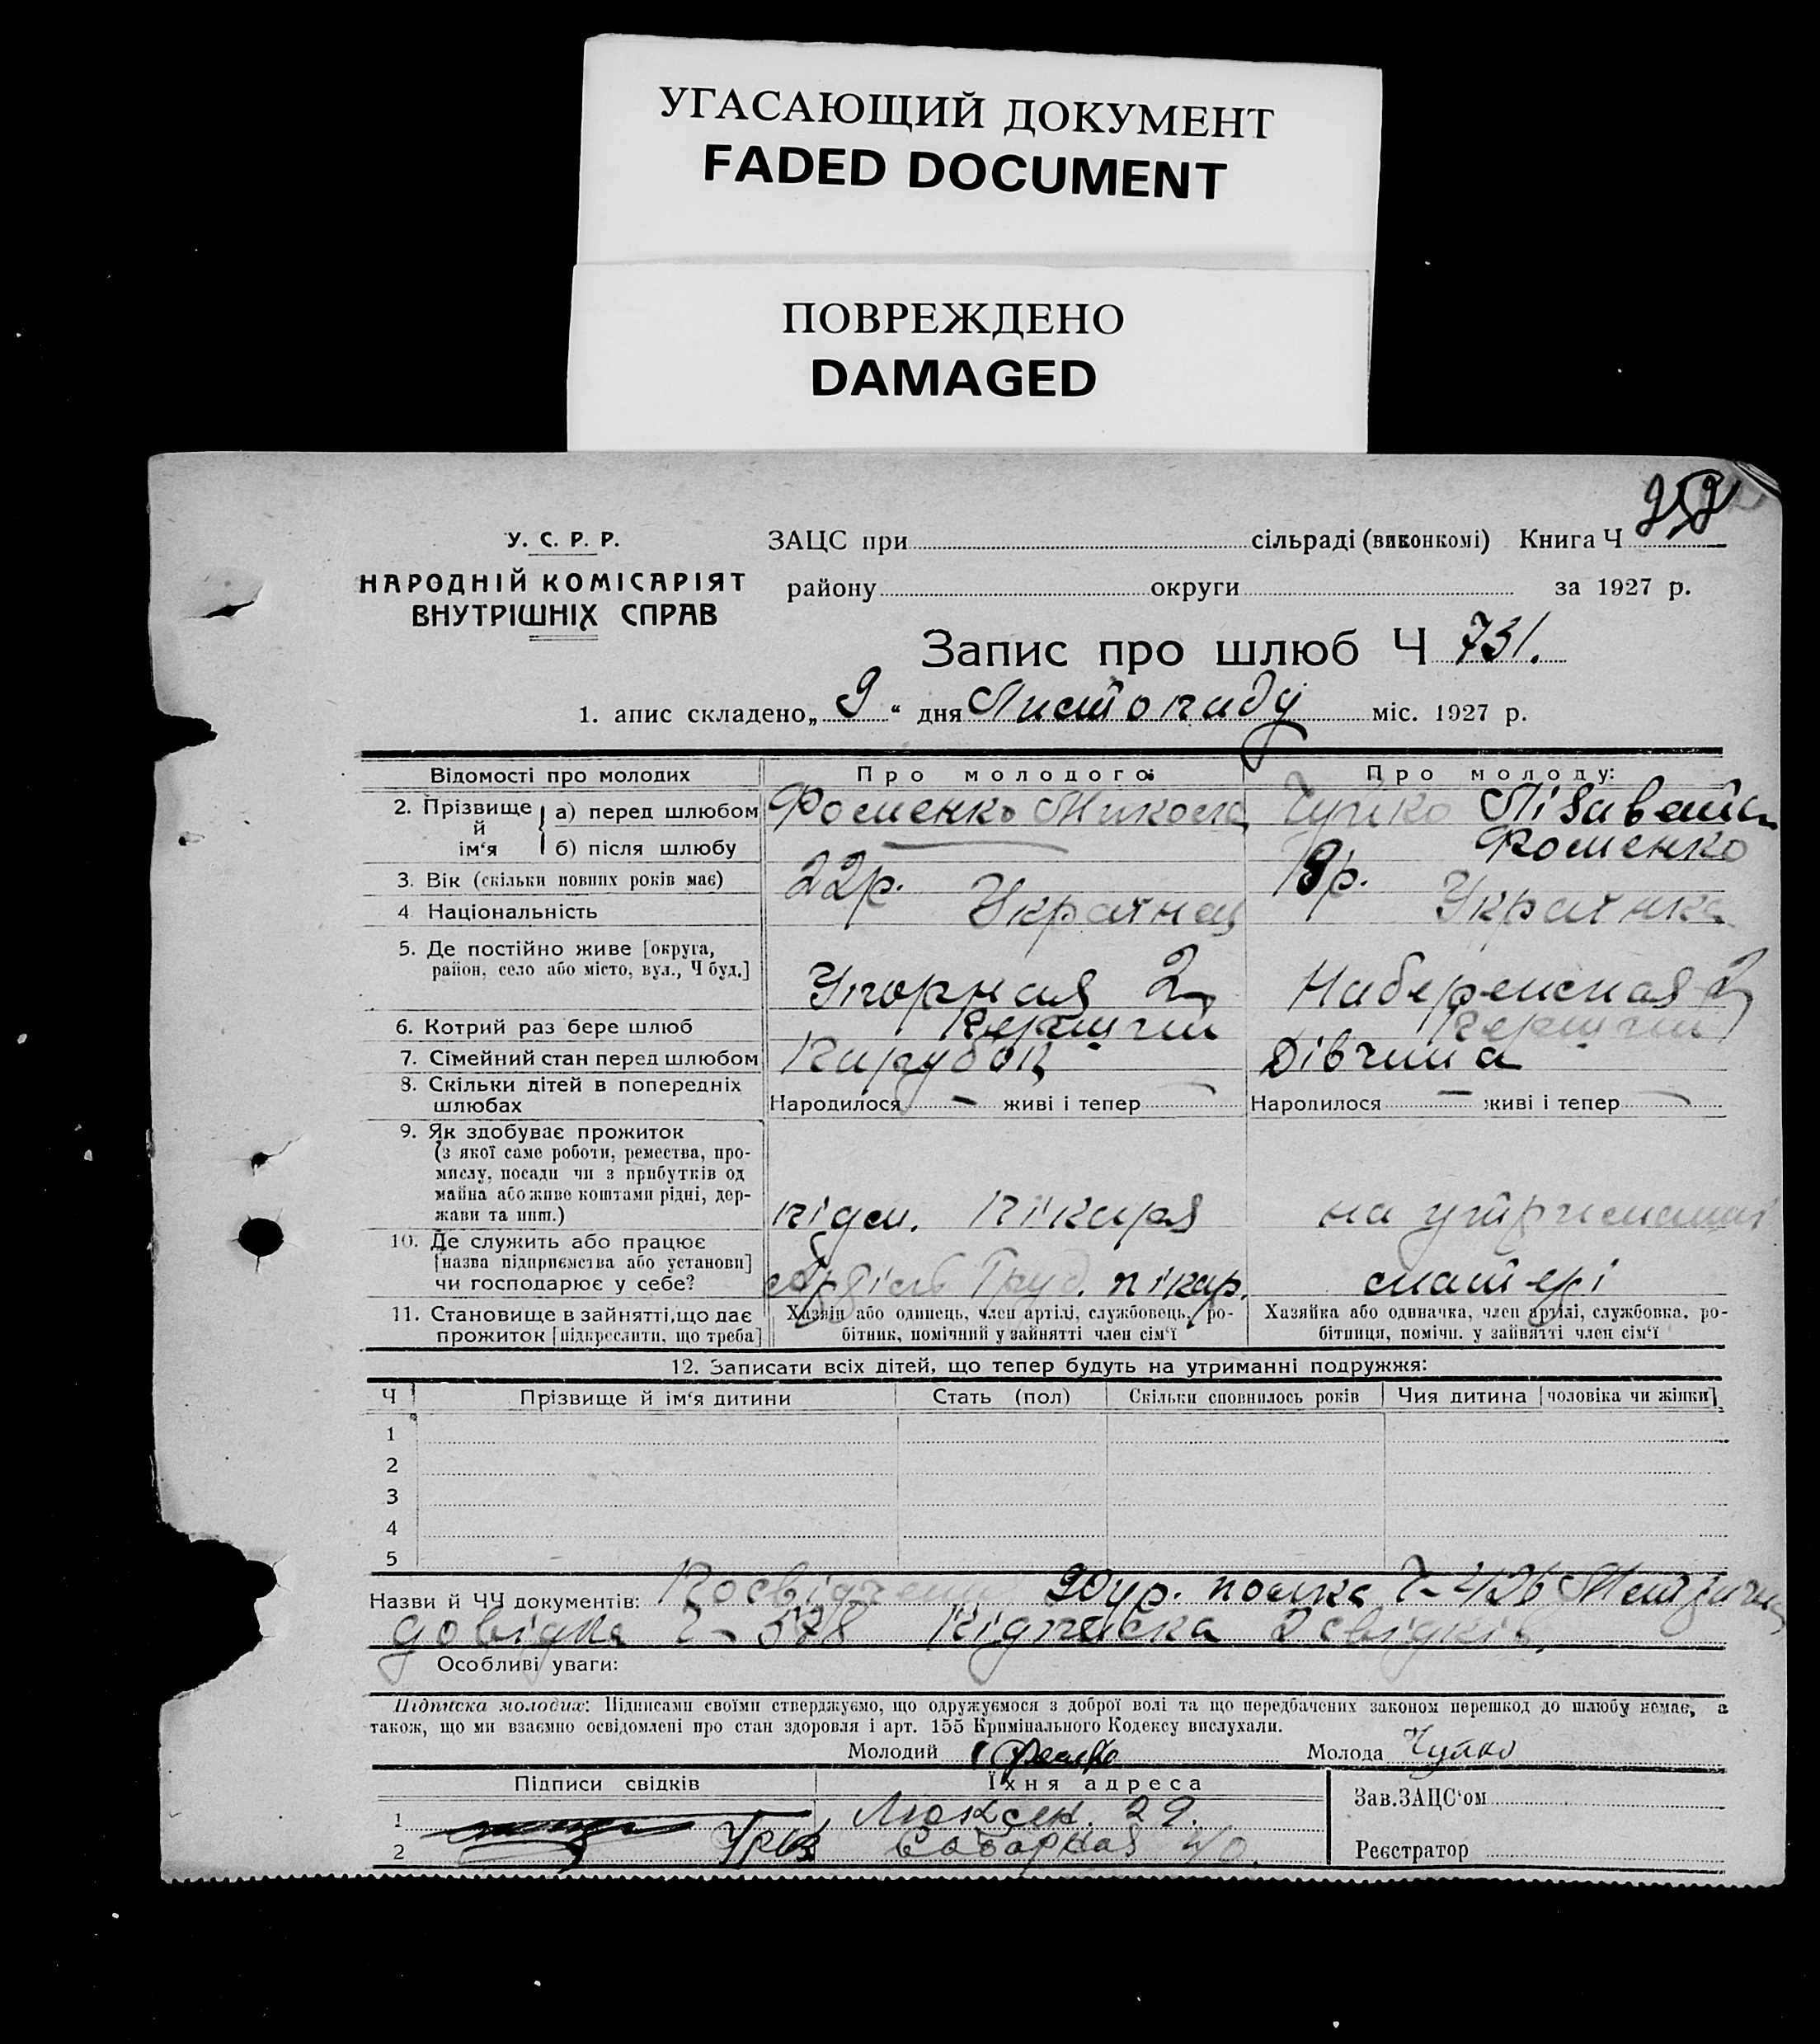 УГАСАЮЩИЙ ДОКУМЕНТ
FADED DOCUMENT
ПОВРЕЖДЕНО
DAMAGED
У. С. Р. Р.
НАРОДНІЙ КОМІСАРІЯТ
ВНУТРІШНІХ СПРАВ
ЗАЦС при сільраді (виконкомі) Книга Ч
району округи за 1927 р.
Запис про шлюб Ч 731.
1. апис складено „ 9 “ дня Листопаду міс. 1927 р.
Відомості про молодих Про молодого: Про молоду:
2. Прізвище й ім‘я а) перед шлюбом Фоменко Микола Чуйко Лізавета
б) після шлюбу Фоменко
3. Вік (скільки повних років має) 22р. 18р.
4 Національність Українец Українка
5. Де постійно живе [округа,
район, село або місто, вул., Ч буд.] Упорная 2 Набережная 2
6. Котрий раз бере шлюб Перший Перший
7. Сімейний стан перед шлюбом Парубок Дівчина
8. Скільки дітей в попередніх
шлюбах Народилося — живі і тепер — Народилося — живі і тепер —
9. Як здобуває прожиток
(з якої саме роботи, ремества, про-
мислу, посади чи з прибутків од
майна або живе коштами рідні, дер-
жави та инш.) підм. пікаря на утриманні
10. Де служить або працює
[назва підприємства або установи]
чи господарює у себе? Труд. пікар. матері
11. Становище в зайнятті, що дає
прожиток [підкреслити, що треба]
Хазяїн або одинець, член артілі, службовець, ро-
бітник, помічний у зайнятті член сім‘ї
Хазяйка або одиначка, член артілі, службовка, ро-
бітниця, помічн. у зайнятті член сім‘ї
12. Записати всіх дітей, що тепер будуть на утриманні подружжя:
Ч Прізвище й ім‘я дитини Стать (пол) Скільки сповнилось років Чия дитина [чоловіка чи жінки]
1
2
3
4
5
Назви й ЧЧ документів: Посвідчення 90 полка
довідка Ч- 578 Підписка 2 свідків.
Особливі уваги:
Підписка молодих: Підписами своїми стверджуємо, що одружуємося з доброї волі та що передбачених законом перешкод до шлюбу немає, а
також, що ми взаємно освідомлені про стан здоровля і арт. 155 Кримінального Кодексу вислухали.
Молодий Молода Чуйко
Підписи свідків Їхня адреса
1 29.
2 Соборная 40.
Зав. ЗАЦС‘ом
Реєстратор